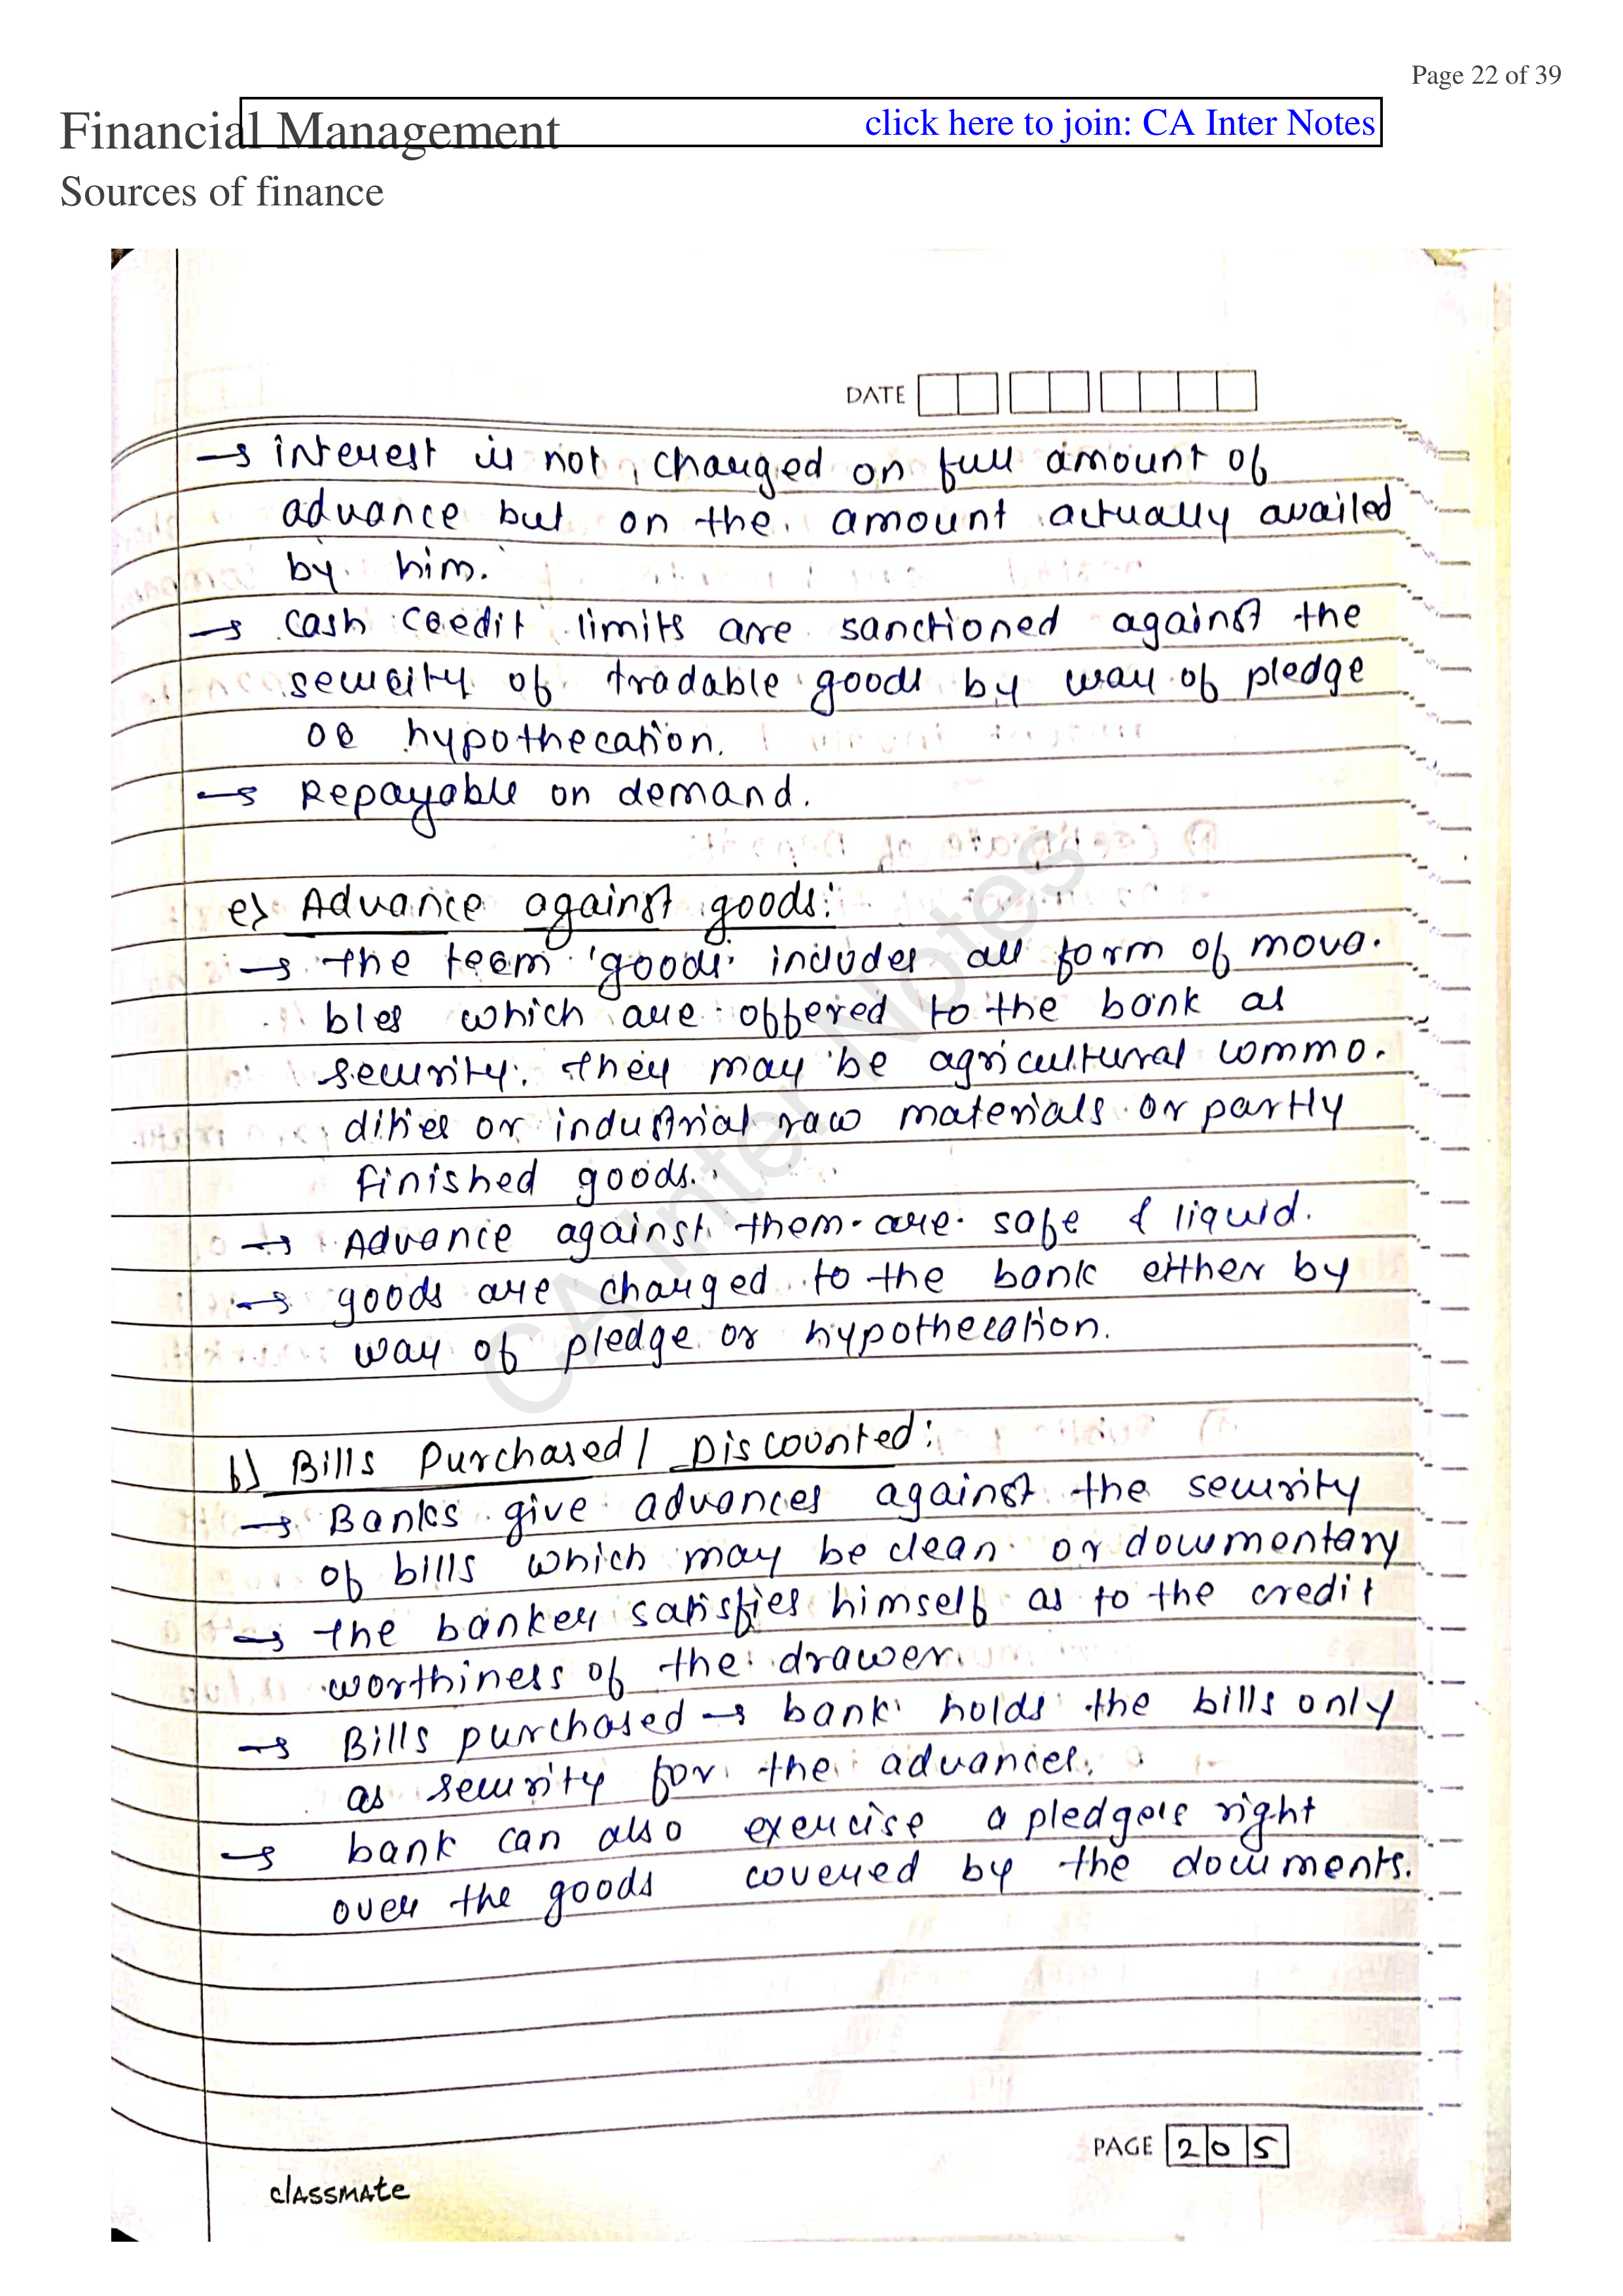 Page 22 of 39
Financial Management
click here to join: CA Inter Notes
Sources of finance
DATE
→ interest is not charged on full amount of
advance but on the amount actually availed
by him.
→ cash credit limits are sanctioned against the
security of tradable goods by way of pledge
or hypothecation.
→ Repayable on demand.
e) Advance against goods:
→ the term 'goods' includes all form of mova-
bles which are offered to the bank as
security. they may be agricultural commo-
dities or industrial raw materials or partly
finished goods.
→ Advance against them are safe & liquid.
→ goods are charged to the bank either by
way of pledge or hypothecation.
f) Bills Purchased / Discounted:
→ Banks give advances against the security
of bills which may be clean or documentary
→ the banker satisfies himself as to the credit
worthiness of the drawer.
→ Bills purchased → bank holds the bills only
as security for the advances.
→ bank can also exercise a pledgers right
over the goods covered by the documents.
CA Inter Notes
PAGE 205
classmate